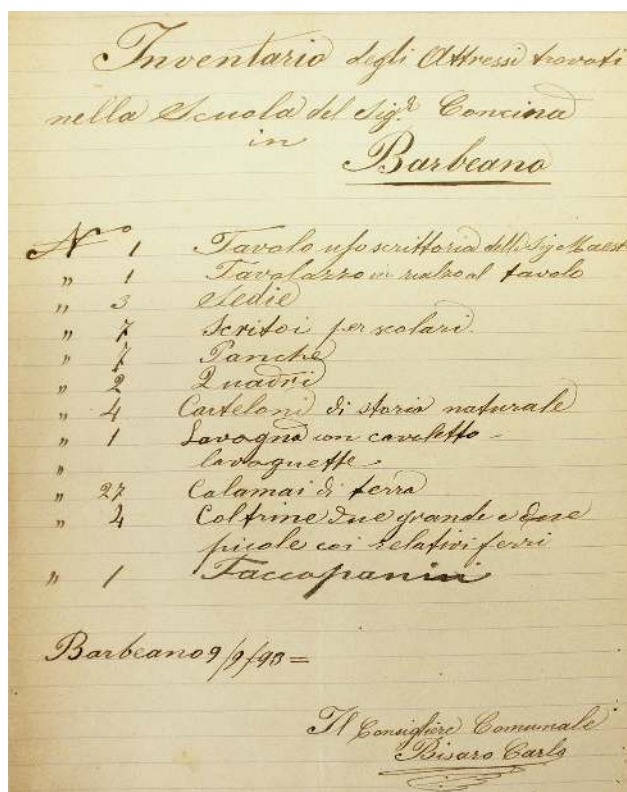 Inventario degli Attressi trovati
nella Scuola del Sigr Concina
in
Barbeano
No 1 Tavolo uso scrittoria delli Sig Maest
" 1 Tavolazzo in rialzo al tavolo
" 3 Sedie
" 7 Scritoi per scolari
" 7 Panche
" 2 Quadri
" 4 Carteloni di storia naturale
" 1 Lavogna con cavaletto -
" lavagnette -
" 27 Calamai di terra
" 4 Coltrine due grande e due
picole coi relativi ferri
" 1 Taccapanini
Barbeano 9/9/93 =
Il Consigliere Comunale
Bisaro Carlo